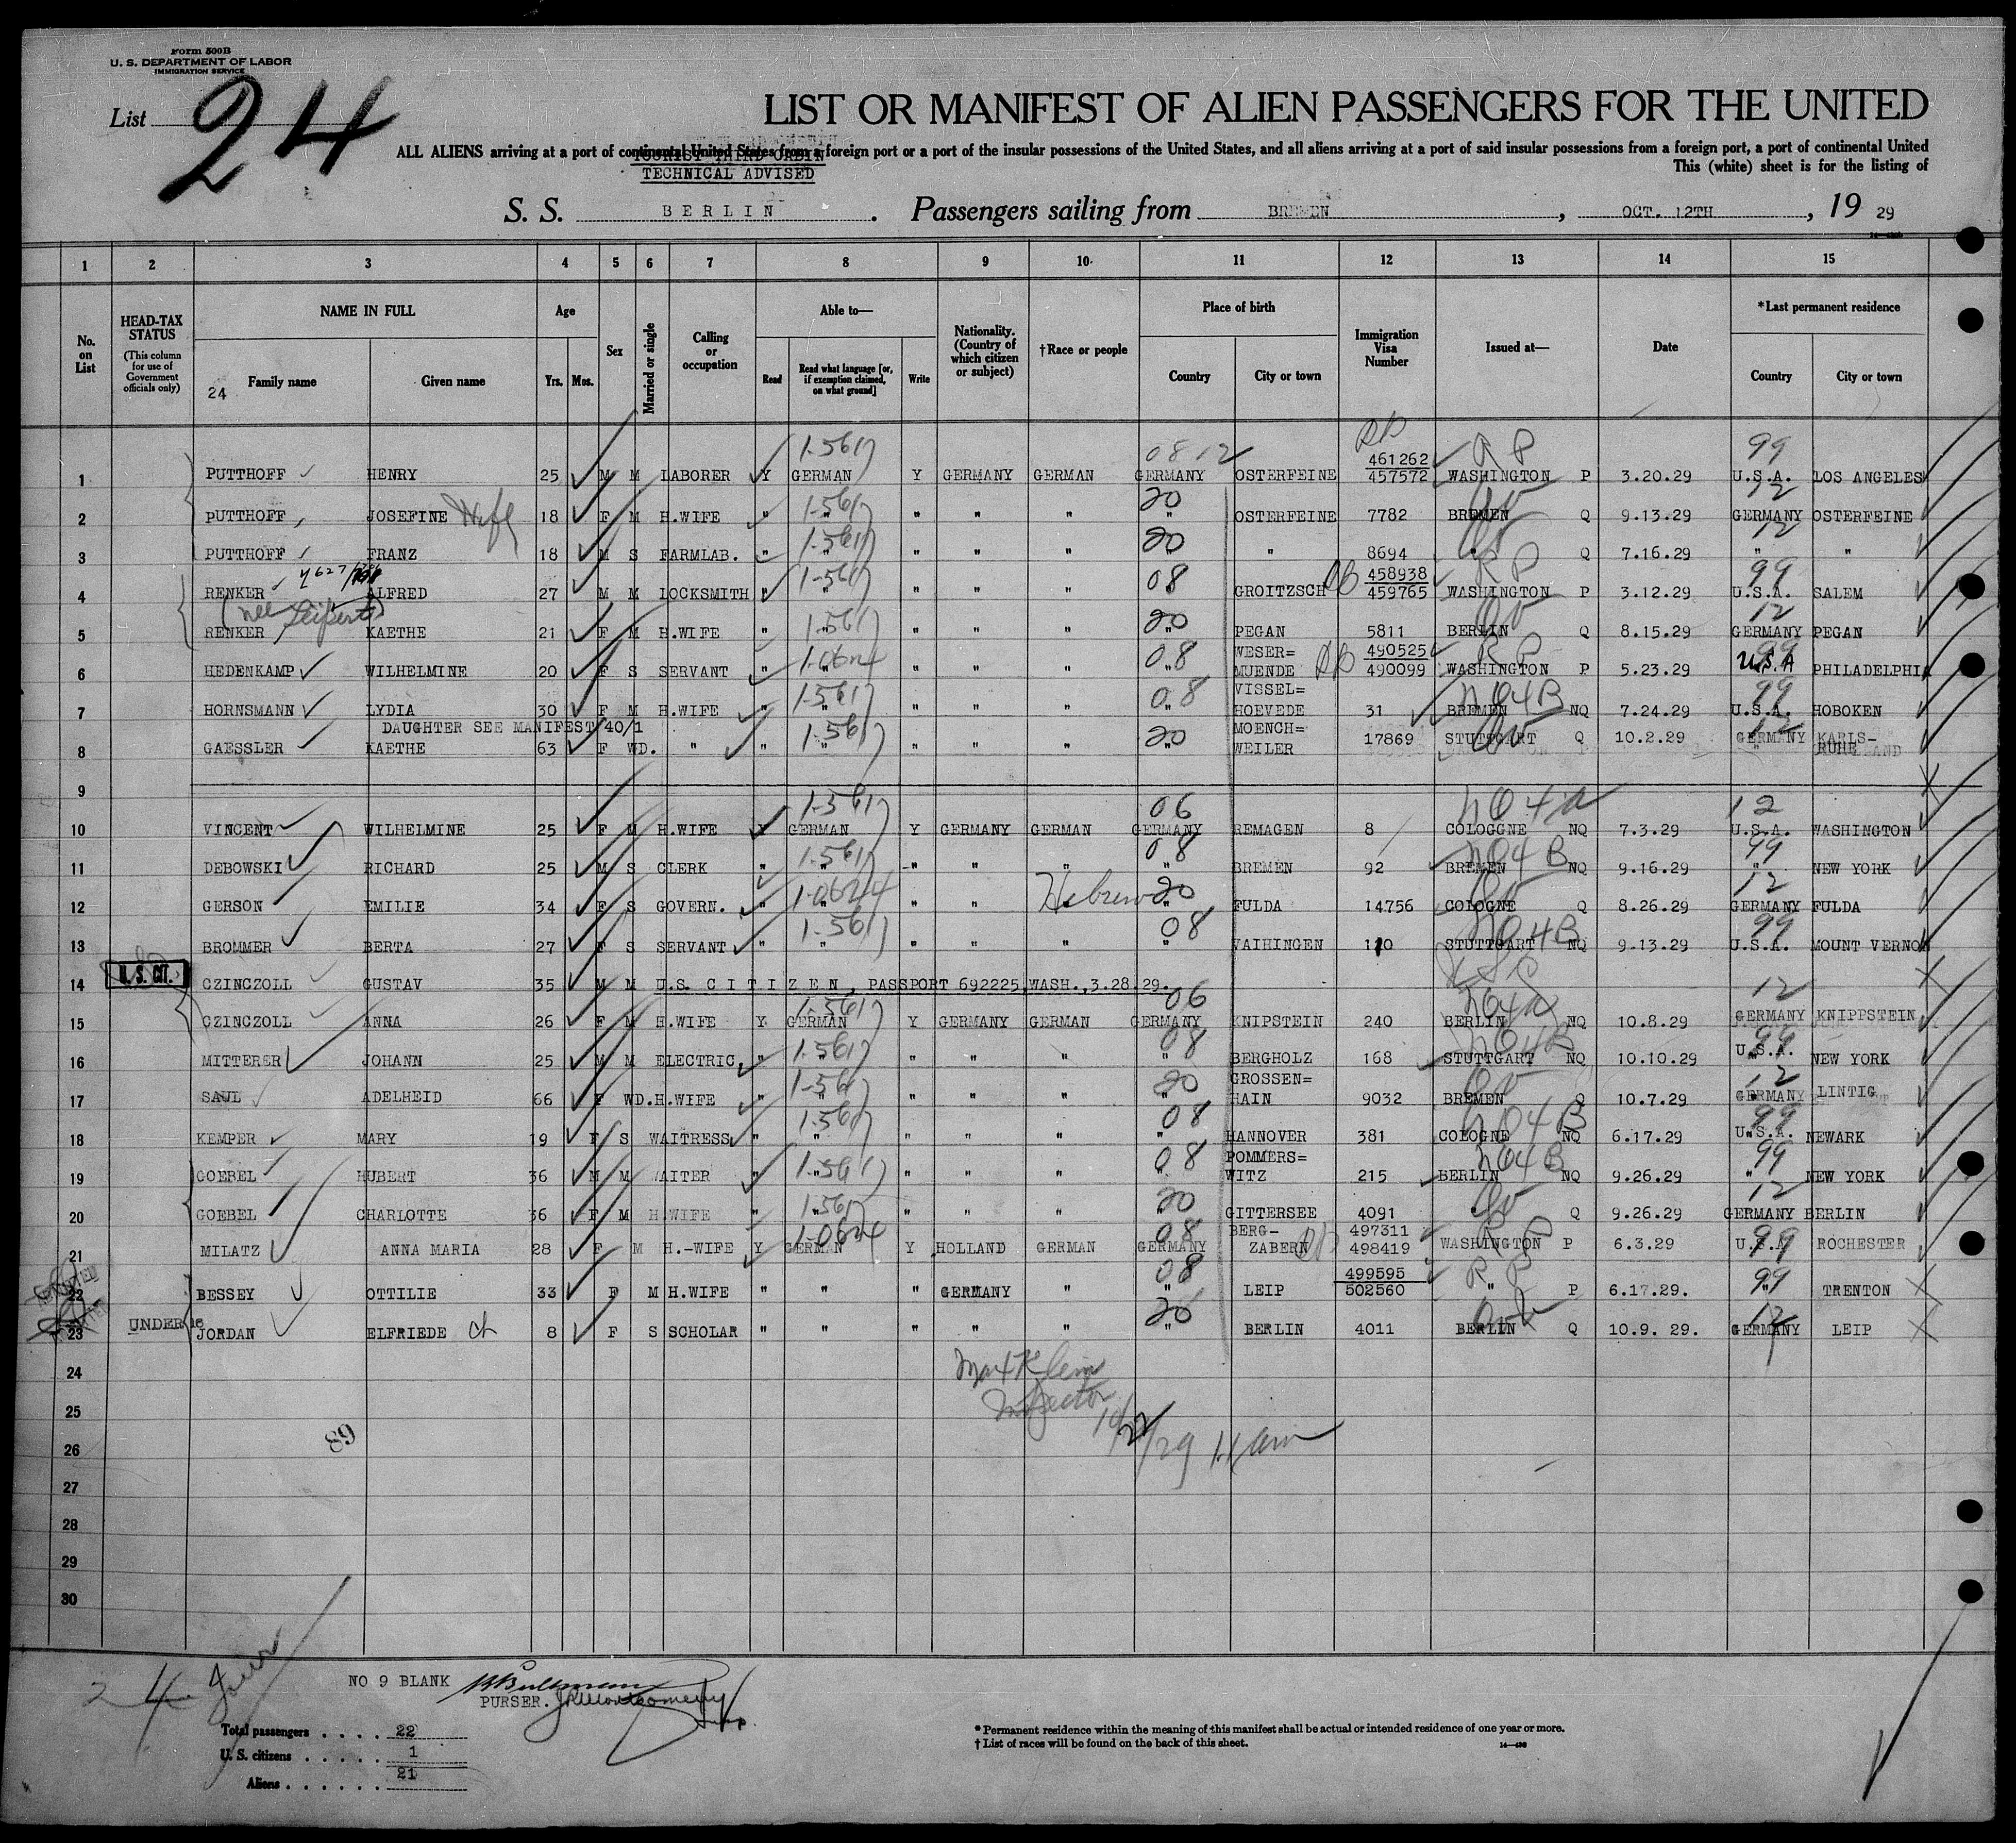 Form 500B
U. S. DEPARTMENT OF LABOR
IMMIGRATION SERVICE
List 24
LIST OR MANIFEST OF ALIEN PASSENGERS FOR THE UNITED
ALL ALIENS arriving at a port of continental United States from a foreign port or a port of the insular possessions of the United States, and all aliens arriving at a port of said insular possessions from a foreign port, a port of continental United
TOURIST THIRD
TECHNICAL ADVISED
This (white) sheet is for the listing of
S. S. BERLIN. Passengers sailing from BREMEN, OCT. 12TH, 19 29
1 2 3 4 5 6 7 8 9 10 11 12 13 14 15
No. on List
HEAD-TAX STATUS (This column for use of Government officials only)
NAME IN FULL
24 Family name Given name
Age Yrs. Mos.
Sex
Married or single
Calling or occupation
Able to— Read Read what language [or, if exemption claimed, on what ground] Write
Nationality. (Country of which citizen or subject)
†Race or people
Place of birth Country City or town
Immigration Visa Number
Issued at—
Date
*Last permanent residence Country City or town
1-5617 0812 RP 99
1 PUTTHOFF HENRY 25 M M LABORER Y GERMAN Y GERMANY GERMAN GERMANY OSTERFEINE 461262 457572 WASHINGTON P 3.20.29 U.S.A. LOS ANGELES
1-5617 20 12
2 PUTTHOFF JOSEFINE Wife 18 F M H.WIFE " " " " " " OSTERFEINE 7782 BREMEN Q 9.13.29 GERMANY OSTERFEINE
1-5617 20 12
3 PUTTHOFF FRANZ 18 M S FARMLAB. " " " " " " " 8694 " Q 7.16.29 " "
1-5617 08 RP 99
4 RENKER ALFRED 27 M M LOCKSMITH " " " " " " GROITZSCH 458938 459765 WASHINGTON P 3.12.29 U.S.A. SALEM
(nee Seifert)
1-5617 20 12
5 RENKER KAETHE 21 F M H.WIFE " " " " " " PEGAN 5811 BERLIN Q 8.15.29 GERMANY PEGAN
1-0624 08 RP
6 HEDENKAMP WILHELMINE 20 F S SERVANT " " " " " " WESER= MUENDE 490525 490099 WASHINGTON P 5.23.29 U.S.A PHILADELPHIA
1-5617 08 N04B 99
7 HORNSMANN LYDIA 30 F M H.WIFE " " " " " " VISSEL= HOEVEDE 31 BREMEN NQ 7.24.29 U.S.A. HOBOKEN
DAUGHTER SEE MANIFEST 40/1
1-5617 20 12
8 GAESSLER KAETHE 63 F WD. " " " " " " " MOENCH= WEILER 17869 STUTTGART Q 10.2.29 GERMANY KARLS- RUHE
9
1-5617 06 N04A 12
10 VINCENT WILHELMINE 25 F M H.WIFE Y GERMAN Y GERMANY GERMAN GERMANY REMAGEN 8 COLOGGNE NQ 7.3.29 U.S.A. WASHINGTON
1-5617 08 N04B 99
11 DEBOWSKI RICHARD 25 M S CLERK " " " " " " BREMEN 92 BREMEN NQ 9.16.29 " NEW YORK
1-0624 20 12
12 GERSON EMILIE 34 F S GOVERN. " " " " Hebrew " FULDA 14756 COLOGNE Q 8.26.29 GERMANY FULDA
1-5617 08 N04B 99
13 BROMMER BERTA 27 F S SERVANT " " " " " " VAIHINGEN 110 STUTTGART NQ 9.13.29 U.S.A. MOUNT VERNON
14 U. S. CIT. CZINCZOLL GUSTAV 35 M M U.S. CITIZEN, PASSPORT 692225, WASH., 3.28.29.
1-5617 06 N04A 12
15 CZINCZOLL ANNA 26 F M H.WIFE Y GERMAN Y GERMANY GERMAN GERMANY KNIPSTEIN 240 BERLIN NQ 10.8.29 GERMANY KNIPPSTEIN
1-5617 08 N04B 99
16 MITTERER JOHANN 25 M M ELECTRIC. " " " " " " BERGHOLZ 168 STUTTGART NQ 10.10.29 U.S.A. NEW YORK
1-5617 20 12
17 SAUL ADELHEID 66 F WD. H.WIFE " " " " " " GROSSEN= HAIN 9032 BREMEN Q 10.7.29 GERMANY LINTIG
1-5617 08 N04B 99
18 KEMPER MARY 19 F S WAITRESS " " " " " " HANNOVER 381 COLOGNE NQ 6.17.29 U.S.A. NEWARK
1-5617 08 N04B 99
19 GOEBEL HUBERT 36 M M WAITER " " " " " " POMMERS= WITZ 215 BERLIN NQ 9.26.29 " NEW YORK
1-5617 20 12
20 GOEBEL CHARLOTTE 36 F M H.WIFE " " " " " " GITTERSEE 4091 " Q 9.26.29 GERMANY BERLIN
1-0624 08 RP 99
21 MILATZ ANNA MARIA 28 F M H.-WIFE Y GERMAN Y HOLLAND GERMAN GERMANY BERG- ZABERN 497311 498419 WASHINGTON P 6.3.29 U.S.A ROCHESTER
08 RP 99
22 BESSEY OTTILIE 33 F M H.WIFE " " " GERMANY " " LEIP 499595 502560 " P 6.17.29. " TRENTON
20 12
23 UNDER 16 JORDAN ELFRIEDE ch 8 F S SCHOLAR " " " " " " BERLIN 4011 BERLIN Q 10.9. 29. GERMANY LEIP
24
Max Klein
25
Inspector
26
89
10/22/29 11 am
27
28
29
30
24
NO 9 BLANK
PURSER.
Total passengers . . . . 22
U. S. citizens . . . . . 1
Aliens . . . . . . 21
* Permanent residence within the meaning of this manifest shall be actual or intended residence of one year or more.
† List of races will be found on the back of this sheet.